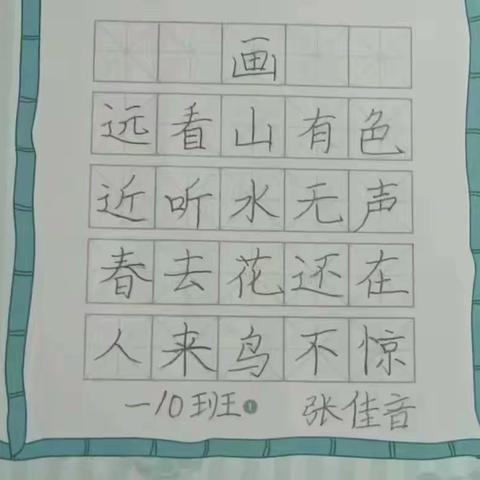 画
远看山有色
近听水无声
春去花还在
人来鸟不惊
一10班① 张佳音